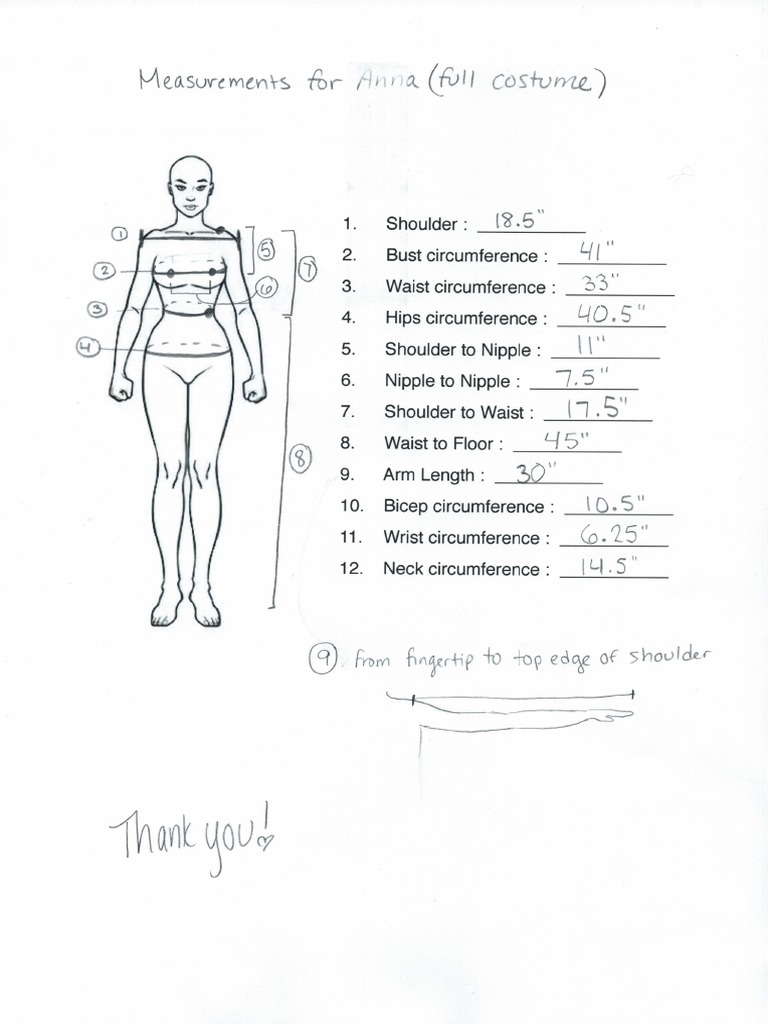 Measurements for Anna (full costume)
① ⑤ ⑦
②
⑥
③
④
⑧
1. Shoulder : 18.5"
2. Bust circumference : 41"
3. Waist circumference : 33"
4. Hips circumference : 40.5"
5. Shoulder to Nipple : 11"
6. Nipple to Nipple : 7.5"
7. Shoulder to Waist : 17.5"
8. Waist to Floor : 45"
9. Arm Length : 30"
10. Bicep circumference : 10.5"
11. Wrist circumference : 6.25"
12. Neck circumference : 14.5"
⑨. from fingertip to top edge of shoulder
Thank you!